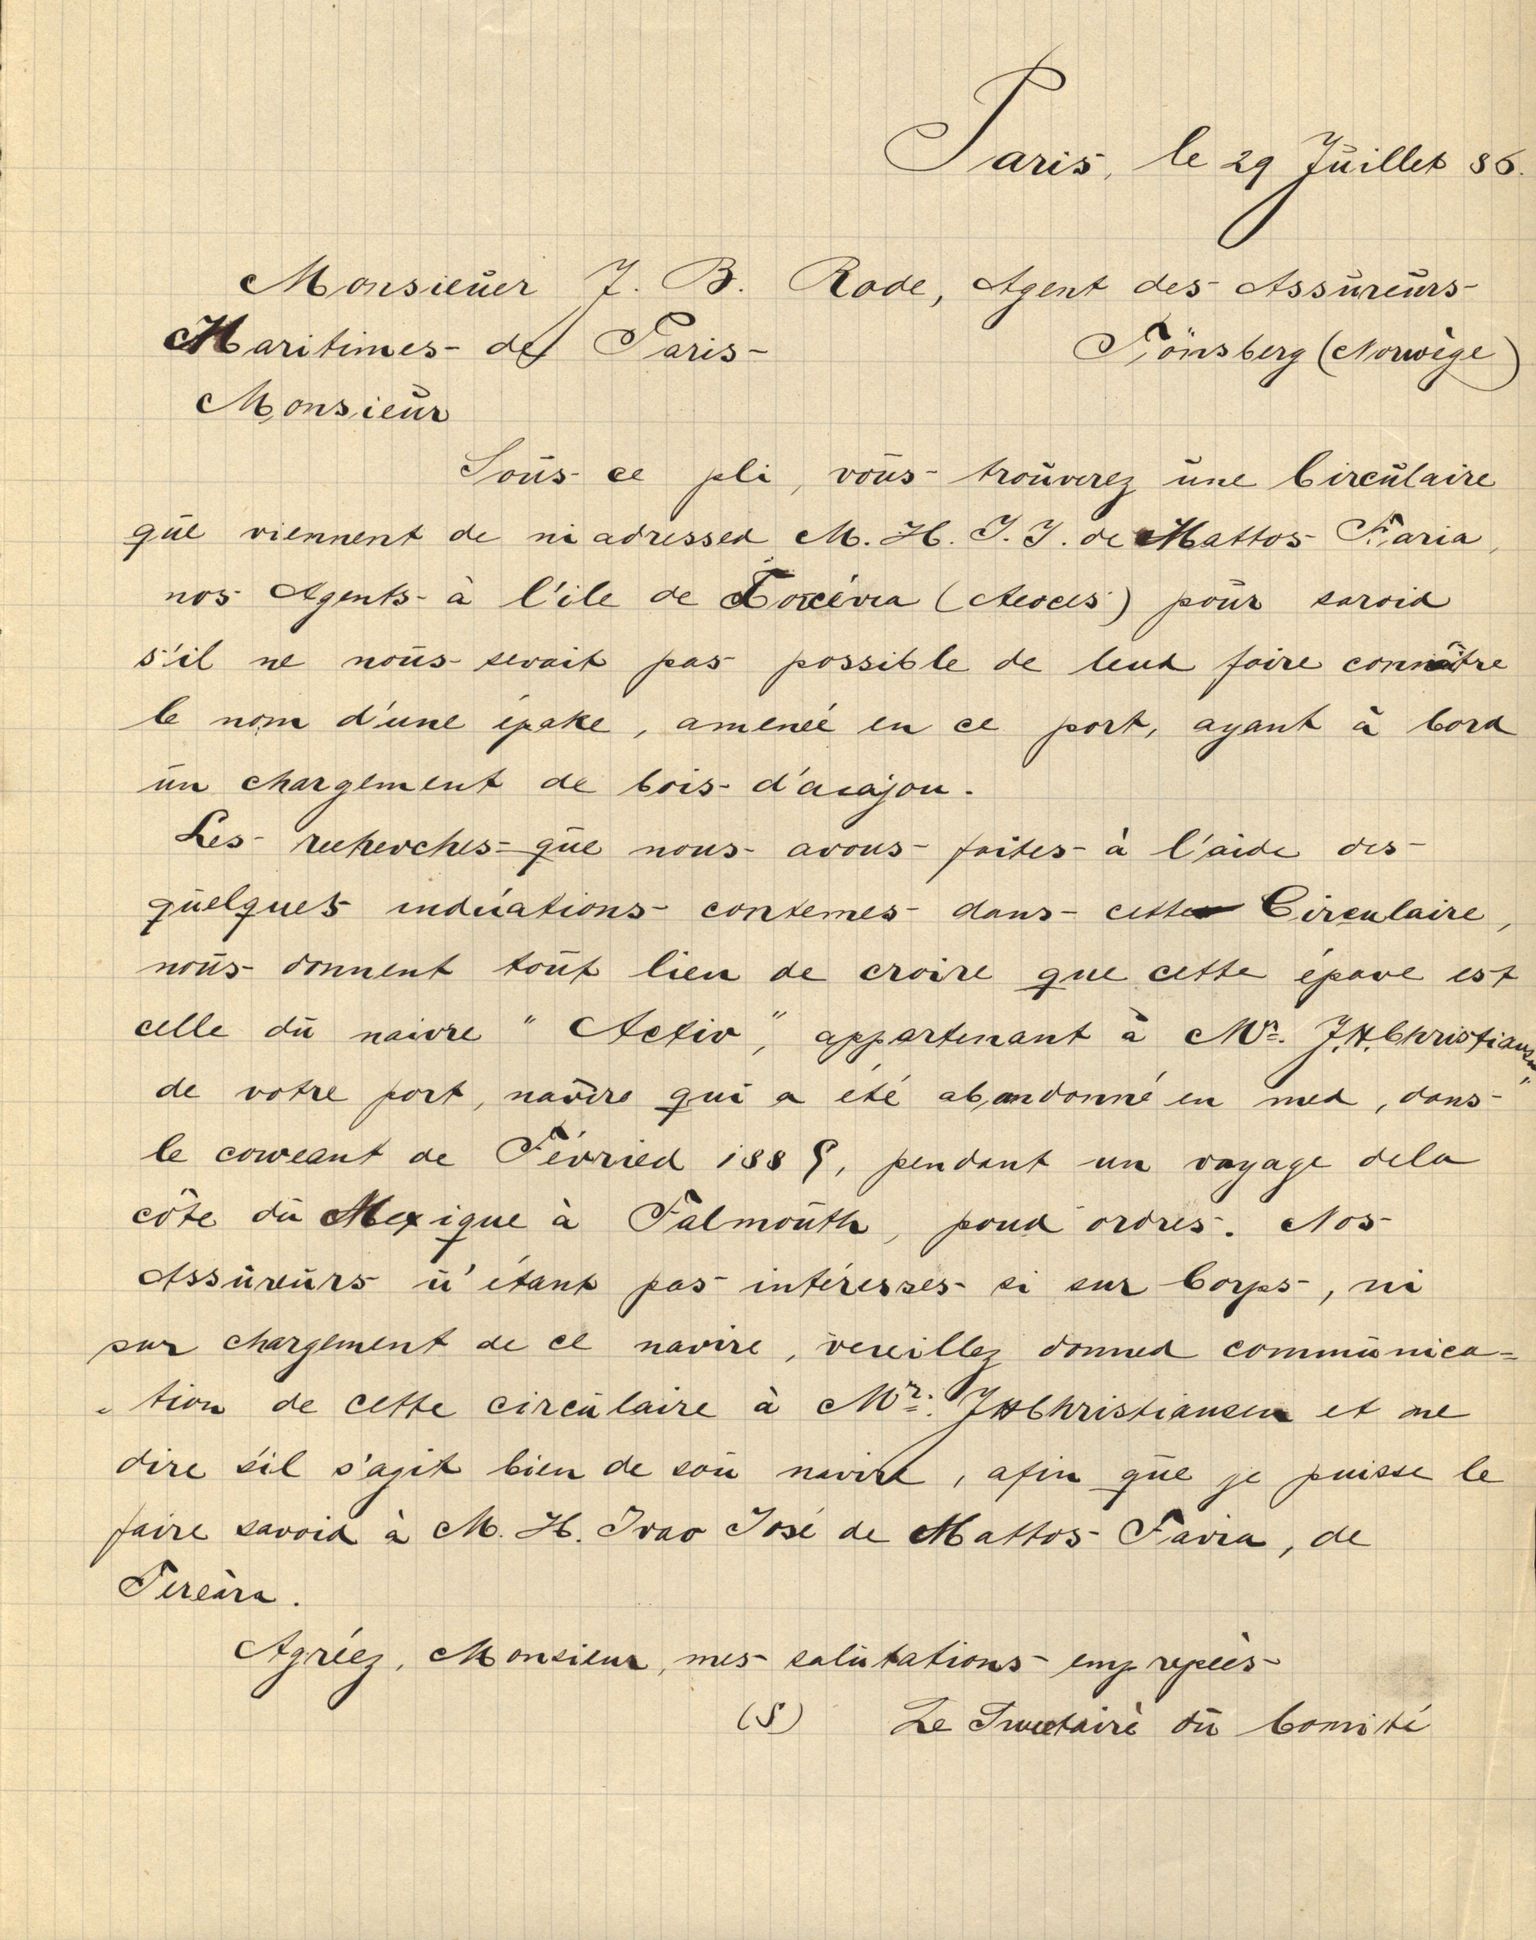 Paris, le 29 Juillet 86.
Monsieuer J. B. Rode, Agent des Assureurs
Maritimes de Paris
Tönsberg (Norwège)
Monsieur
Sous ce pli, vous trouverez une Circulaire
que viennent de m'adressed M. H. J. J. de Mattos Faria,
nos Agents à l'ile de (Acoces) pour savoid
s'il ne nous serait pas possible de leud faire connaître
le nom d'une épake, amenée en ce port, ayant à bord
un chargement de bois d'acajou.
Les recherches que nous avons faites à l'aide des
quelques indications contemes dans cette Circulaire,
nous donnent tout lieu de croire que cette épave est
celle du naivre "Activ", appartenant à Mr. J.H. Christiansen
de votre port, navire qui a été abandonné en med, dans
le coureant de Févried 1885, pendant un voyage de la
côte du Mexique à Falmouth, poud ordres. Nos
Assureurs n'étant pas intéresses si sur Corps, ni
sur chargement de ce navire, vereillez donned communica=
=tion de cette circulaire à Mr. J H Christiansen et me
dire s'il s'agit bien de son navire, afin que je puisse le
faire savoid à M. H. Ivao José de Mattos Favia, de
Terceira.
Agréez, Monsieur, mes salutations empressées
(S) Le Secretaire du Comité